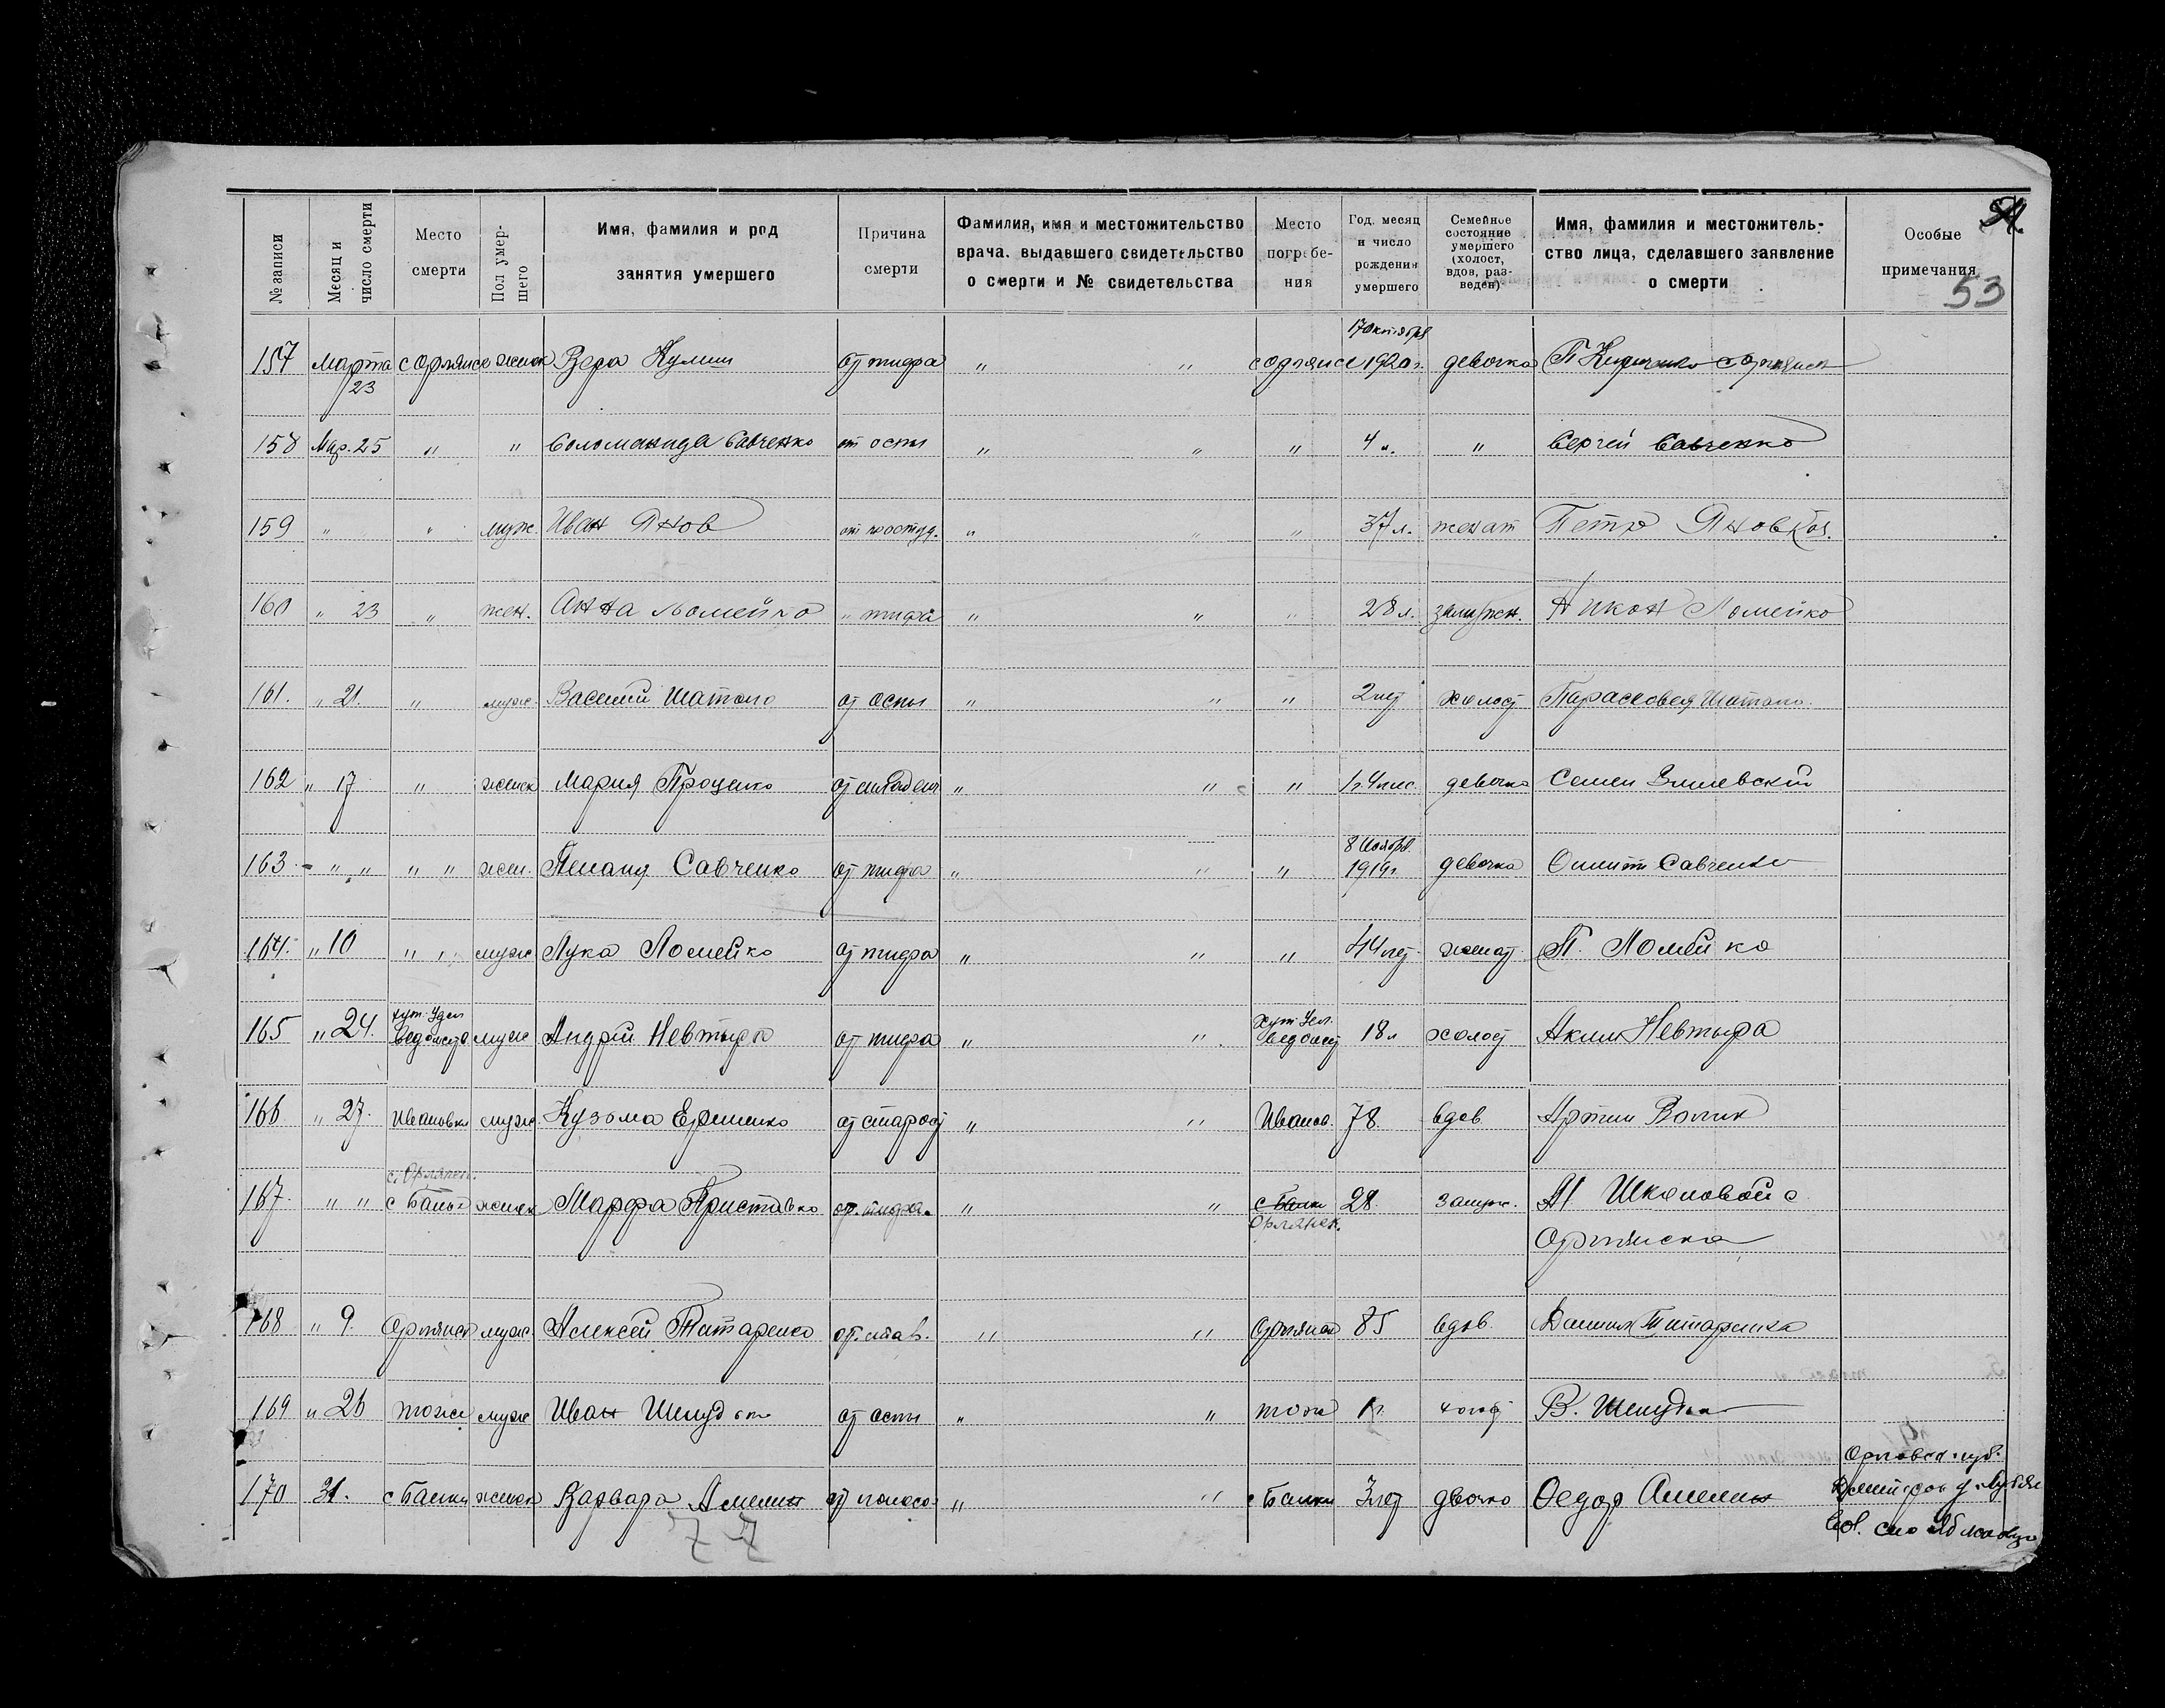 № записи | Месяц и число смерти | Место смерти | Пол умершего | Имя, фамилия и род занятия умершего | Причина смерти | Фамилия, имя и местожительство врача, выдавшего свидетельство о смерти и № свидетельства | Место погребения | Год, месяц и число рождения умершего | Семейное состояние умершего (холост, вдов, разведен) | Имя, фамилия и местожительство лица, сделавшего заявление о смерти | Особые примечания
53
157 Марта 23 с Орлянск женск Вера от тифа " " с Орлянск 17 октября 1920 г. девочка П
158 Мар. 25 " " Соломанида Савченко от оспы " " " 4 " Сергей Савченко
159 " " муж. Иван Янов от простуд. " " " 37 л. женат Петр
160 " 23 " жен. Анна Ломейко " тифа " " " 28 л. замужен. Никон Ломейко
161. " 21. " муж. Василий от оспы " " " 2 лет холост Парасковея
162 " 17 " женск Мария Проценко " " " 1 г. 4 мес. девочка Семен
163 " " " " жен. Савченко от тифа " " " 8 Ноября 1919 г. девочка Савченко
164. " 10 " " муж Лука Ломейко от тифа " " " 44 лет женат П. Ломейко
165 " 24. хут. Удел ведомств муж Андрей Невтыра от тифа " " хут Уел. ведомст 18 л холост Аким Невтыра
166 " 27. Ивановка муж Кузьма Ериненко от старост " " Иванов. 78. вдов Артем Волик
167. " " с. Орлянск. с Балки женск Марфа Приставко от тифа. " " с Балки Орлянск. 28. замуж. Школовой с
Орлянска
168 " 9. Орлянск муж. Алексей Титаренко " " Орлянск 85 вдов. Даниил Титаренко
169 " 26 тоже муж Иван от оспы " " тоже 1 г. холост В.
170 31. с Балки женск Варвара Амелин " " с Балки 3 лет двочка Федор Амелин Орловск. губ.
77